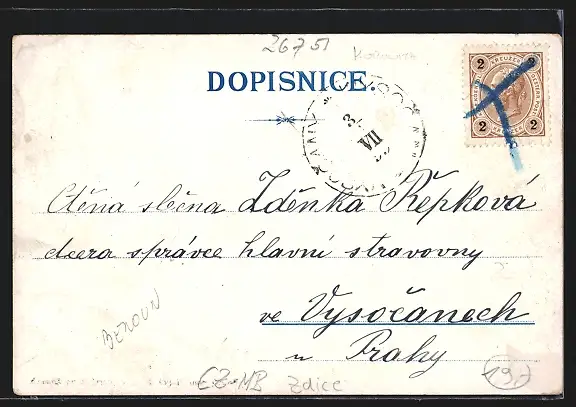 26751
DOPISNICE.
2 KREUZER 2
2 2
3/
VII
Ctěná slečna Zdeňka Řepková
dcera správce hlavní stravovny
ve Vysočanech
u Prahy
BEROUN
CZ-MB Zdice
197